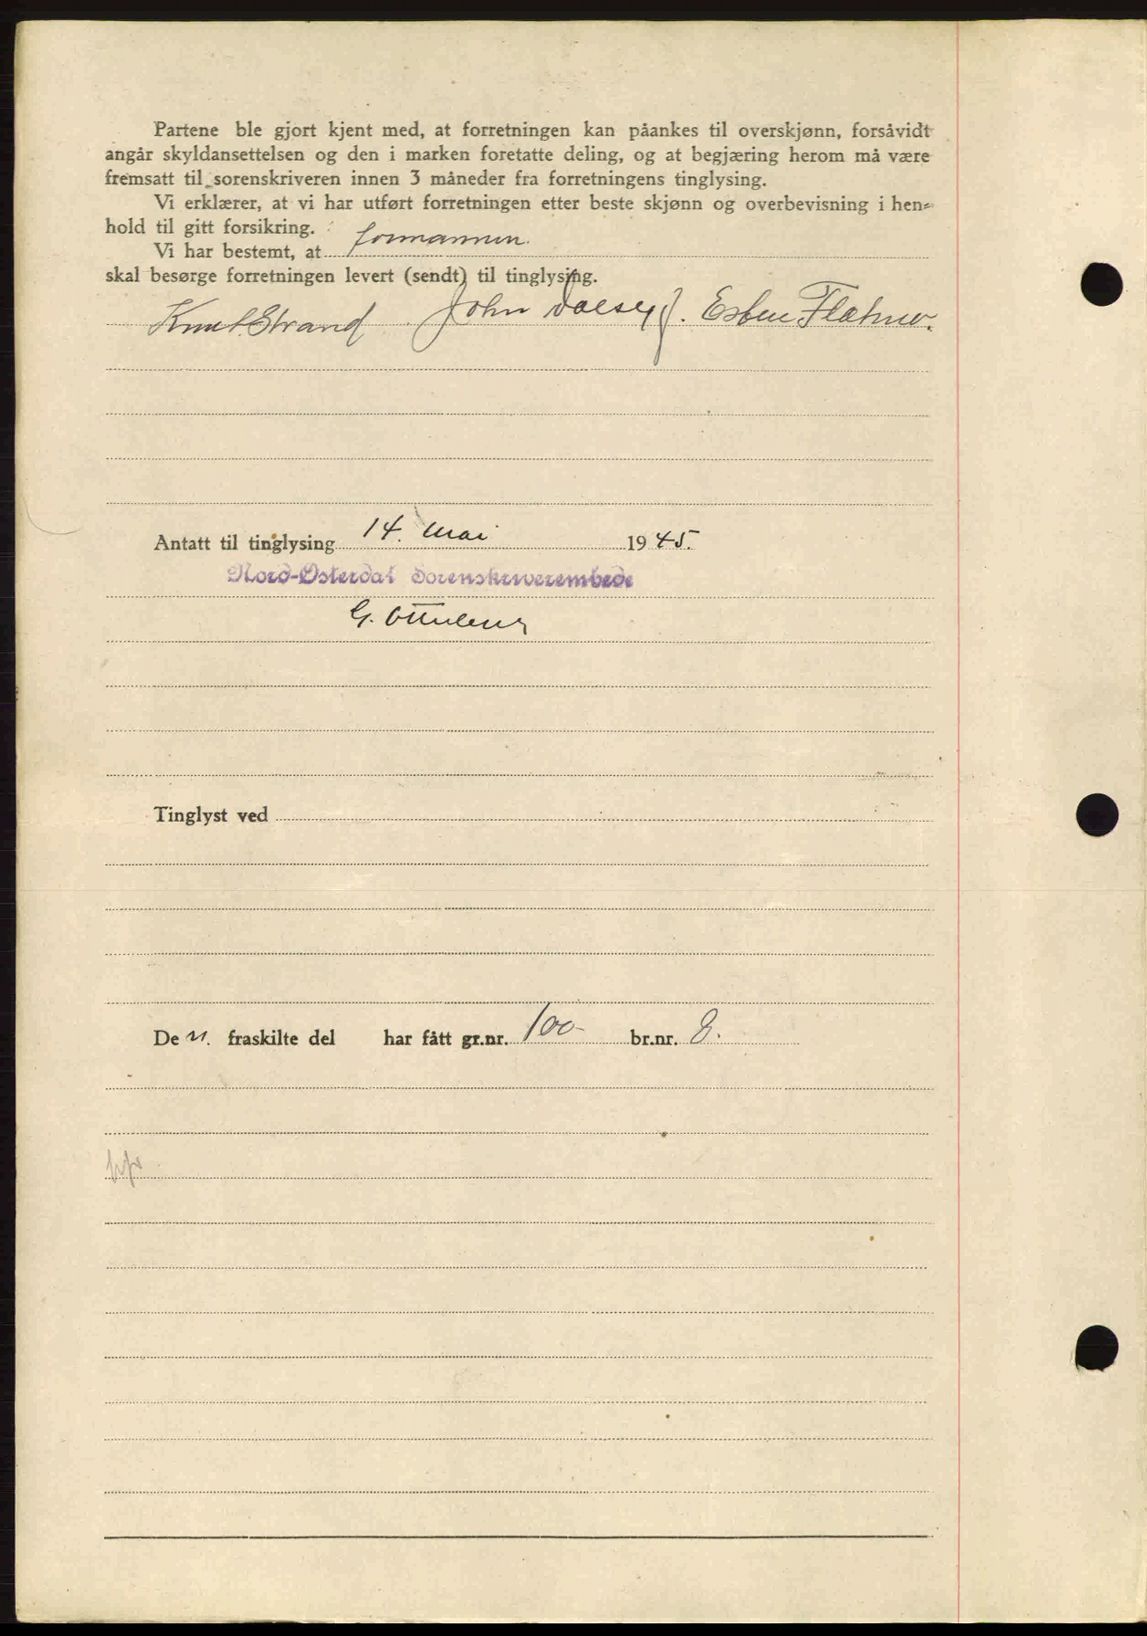 Partene ble gjort kjent med, at forretningen kan påankes til overskjønn, forsåvidt
angår skyldansettelsen og den i marken foretatte deling, og at begjæring herom må være
fremsatt til sorenskriveren innen 3 måneder fra forretningens tinglysing.
Vi erklærer, at vi har utført forretningen etter beste skjønn og overbevisning i hen-
hold til gitt forsikring.
Vi har bestemt, at formannen.
skal besørge forretningen levert (sendt) til tinglysing.
Knut Strand John Esben
Antatt til tinglysing 14. mai 1945.
Nord-Østerdal Sorenskriverembede
G.
Tinglyst ved
De n. fraskilte del har fått gr.nr. 100 br.nr. 8.